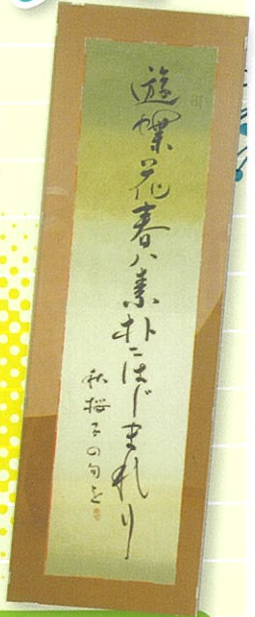 遊蝶花春ハ素朴にはじまれり
秋桜子の句を